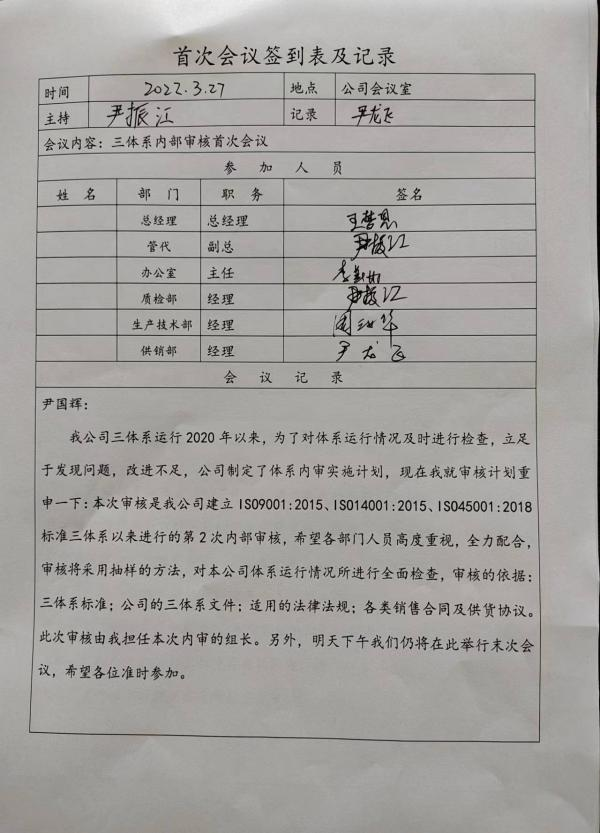 首次会议签到表及记录
时间 2022.3.27 地点 公司会议室
主持 尹振江 记录 尹龙飞
会议内容：三体系内部审核首次会议
参加人员
姓名 部门 职务 签名
总经理 总经理
管代 副总 尹振江
办公室 主任
质检部 经理 尹振江
生产技术部 经理
供销部 经理 尹龙飞
会议记录
尹国辉：
我公司三体系运行2020年以来，为了对体系运行情况及时进行检查，立足
于发现问题，改进不足，公司制定了体系内审实施计划，现在我就审核计划重
申一下：本次审核是我公司建立IS09001:2015、IS014001:2015、IS045001:2018
标准三体系以来进行的第2次内部审核，希望各部门人员高度重视，全力配合，
审核将采用抽样的方法，对本公司体系运行情况所进行全面检查，审核的依据：
三体系标准；公司的三体系文件；适用的法律法规；各类销售合同及供货协议。
此次审核由我担任本次内审的组长。另外，明天下午我们仍将在此举行末次会
议，希望各位准时参加。